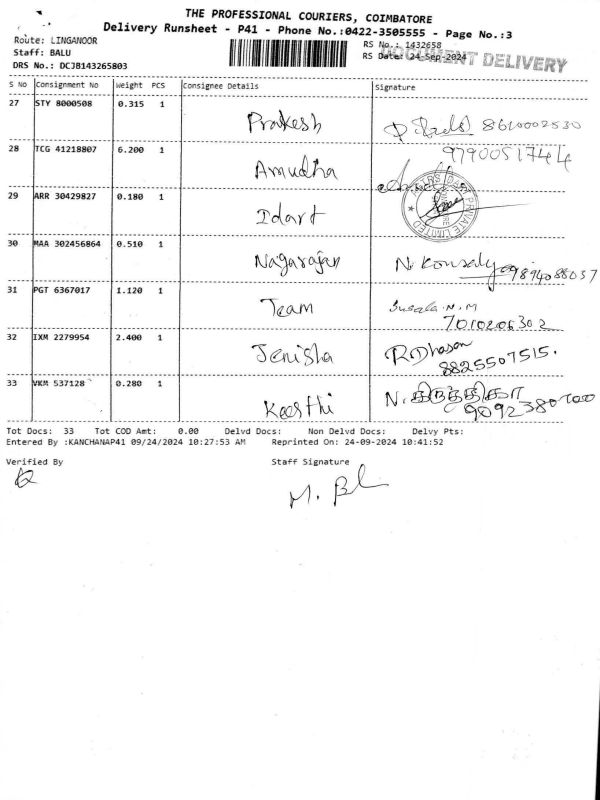 THE PROFESSIONAL COURIERS, COIMBATORE
Delivery Runsheet - P41 - Phone No.:0422-3505555 - Page No.:3
Route: LINGANOOR
RS No.: 1432658
Staff: BALU
RS Date: 24-Sep-2024
DOCUMENT DELIVERY
DRS No.: DCJB143265803
S No Consignment No Weight PCS Consignee Details Signature
27 STY 8000508 0.315 1 Prakesh 8610002530
28 TCG 41218807 6.200 1 Amudha 9790051744
29 ARR 30429827 0.180 1 Idart
PRIVATE LIMITED
30 MAA 302456864 0.510 1 Nagarajan N. 9894088037
31 PGT 6367017 1.120 1 Team Susala N.M
7010206302
32 IXM 2279954 2.400 1 Jenisha R Dhasan
8825507515.
33 VKM 537128 0.280 1 Keerthi N.
Tot Docs: 33 Tot COD Amt: 0.00 Delvd Docs: Non Delvd Docs: Delvy Pts:
Entered By :KANCHANAP41 09/24/2024 10:27:53 AM Reprinted On: 24-09-2024 10:41:52
Verified By Staff Signature